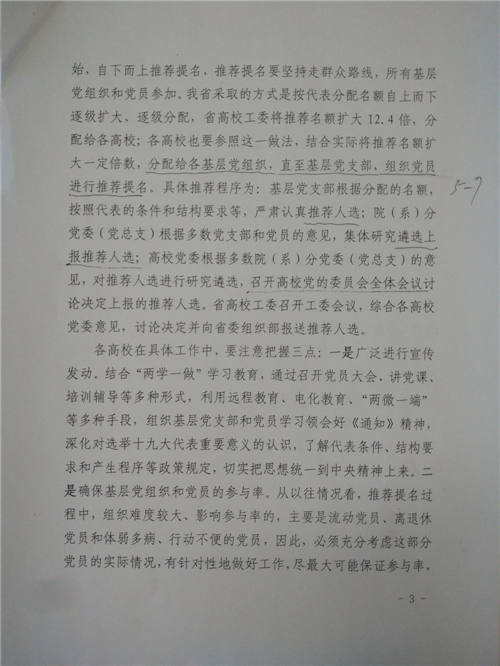 始，自下而上推荐提名，推荐提名要坚持走群众路线，所有基层
党组织和党员参加。我省采取的方式是按代表分配名额自上而下
逐级扩大、逐级分配，省高校工委将推荐名额扩大 12.4 倍，分
配给各高校；各高校也要参照这一做法，结合实际将推荐名额扩
大一定倍数，分配给各基层党组织，直至基层党支部，组织党员
进行推荐提名。具体推荐程序为：基层党支部根据分配的名额，
按照代表的条件和结构要求等，严肃认真推荐人选；院（系）分
党委（党总支）根据多数党支部和党员的意见，集体研究遴选上
报推荐人选；高校党委根据多数院（系）分党委（党总支）的意
见，对推荐人选进行研究遴选，召开高校党的委员会全体会议讨
论决定上报的推荐人选。省高校工委召开工委会议，综合各高校
党委意见，讨论决定并向省委组织部报送推荐人选。
各高校在具体工作中，要注意把握三点：一是广泛进行宣传
发动。结合“两学一做”学习教育，通过召开党员大会、讲党课、
培训辅导等多种形式，利用远程教育、电化教育、“两微一端”
等多种手段，组织基层党支部和党员学习领会好《通知》精神，
深化对选举十九大代表重要意义的认识，了解代表条件、结构要
求和产生程序等政策规定，切实把思想统一到中央精神上来。二
是确保基层党组织和党员的参与率。从以往情况看，推荐提名过
程中，组织难度较大、影响参与率的，主要是流动党员、离退休
党员和体弱多病、行动不便的党员，因此，必须充分考虑这部分
党员的实际情况，有针对性地做好工作，尽最大可能保证参与率，
- 3 -